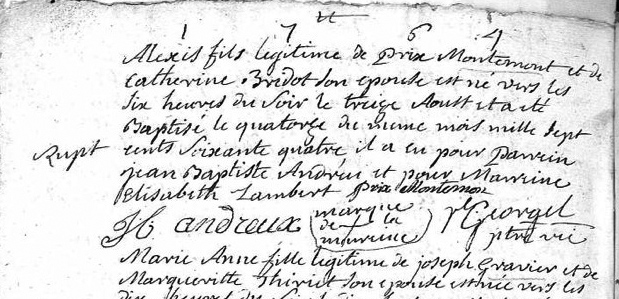 1 7 6 4
Alexis fils legitime de Prix Montemont et de
Catherine Bridot son epouse est né vers les
six heures du soir le treize Aoust et a eté
Baptisé le quatorze du meme mois mille sept
Rupt cents soixante quatre il a eu pour parrein
jean Baptiste Andreu et pour Marreine
elisabeth Lambert prix Montemon
JB andreux marque de la marreine P Georgel
ptre vic
Marie Anne fille legitime de joseph Gravier et de
Margueritte thiriet son epouse est née vers les
dix heures du soir